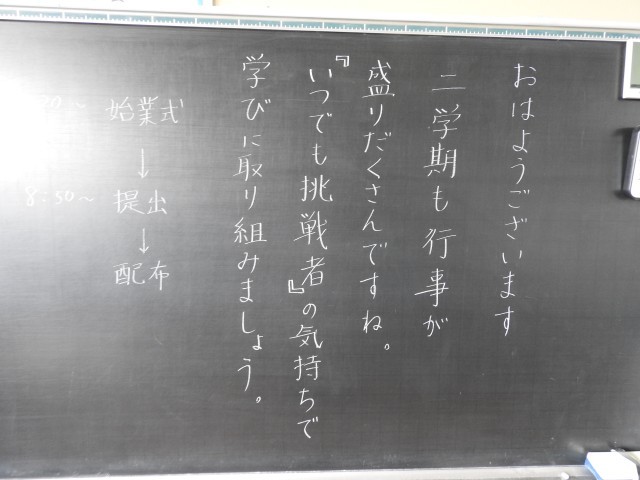 おはようございます
二学期も行事が
盛りだくさんですね。
『いつでも挑戦者』の気持ちで
学びに取り組みましょう。
始業式
↓
8:50～ 提出
↓
配布